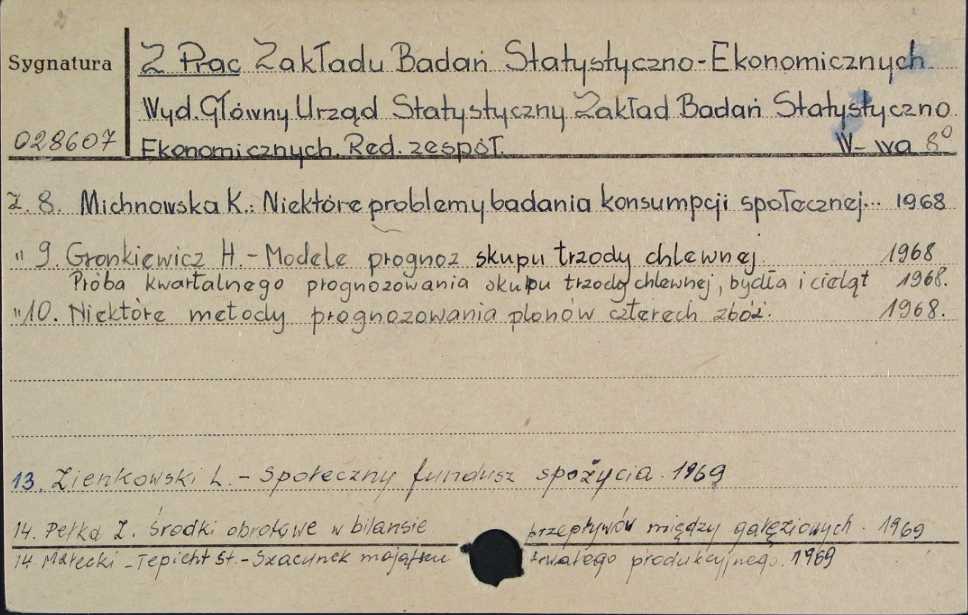 2
Sygnatura
Z Prac Zakładu Badań Statystyczno-Ekonomicznych
Wyd. Główny Urząd Statystyczny Zakład Badań Statystyczno
028607
Ekonomicznych. Red. zespół. W-wa 8°
Z. 8. Michnowska K.: Niektóre problemy badania konsumpcji społecznej... 1968
" 9. Gronkiewicz H. - Modele prognoz skupu trzody chlewnej 1968
Próba kwartalnego prognozowania skupu trzody chlewnej, bydła i cieląt 1968.
" 10. Niektóre metody prognozowania plonów czterech zbóż. 1968.
13. Zienkowski L. - Społeczny fundusz spożycia. 1969
14. Pełka Z. Środki obrotowe w bilansie przepływów między gałęziowych. 1969
14 Małecki - Tepicht St. - Szacunek majątku trwałego produkcyjnego. 1969